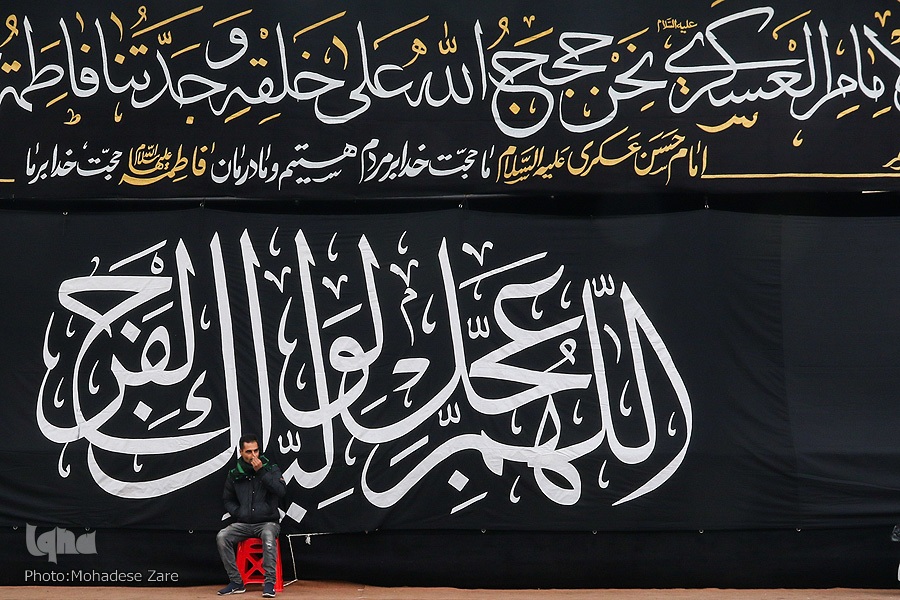 الإمام العسکري علیه‌السلام نحن حجج الله علی خلقه و جدتنا فاطمة
امام حسن عسکری علیه السلام ما حجت خدا بر مردم هستیم و مادرمان فاطمه علیهاالسلام حجت خدا بر ما
اللهم عجل لولیک الفرج
iqna
Photo:Mohadese Zare